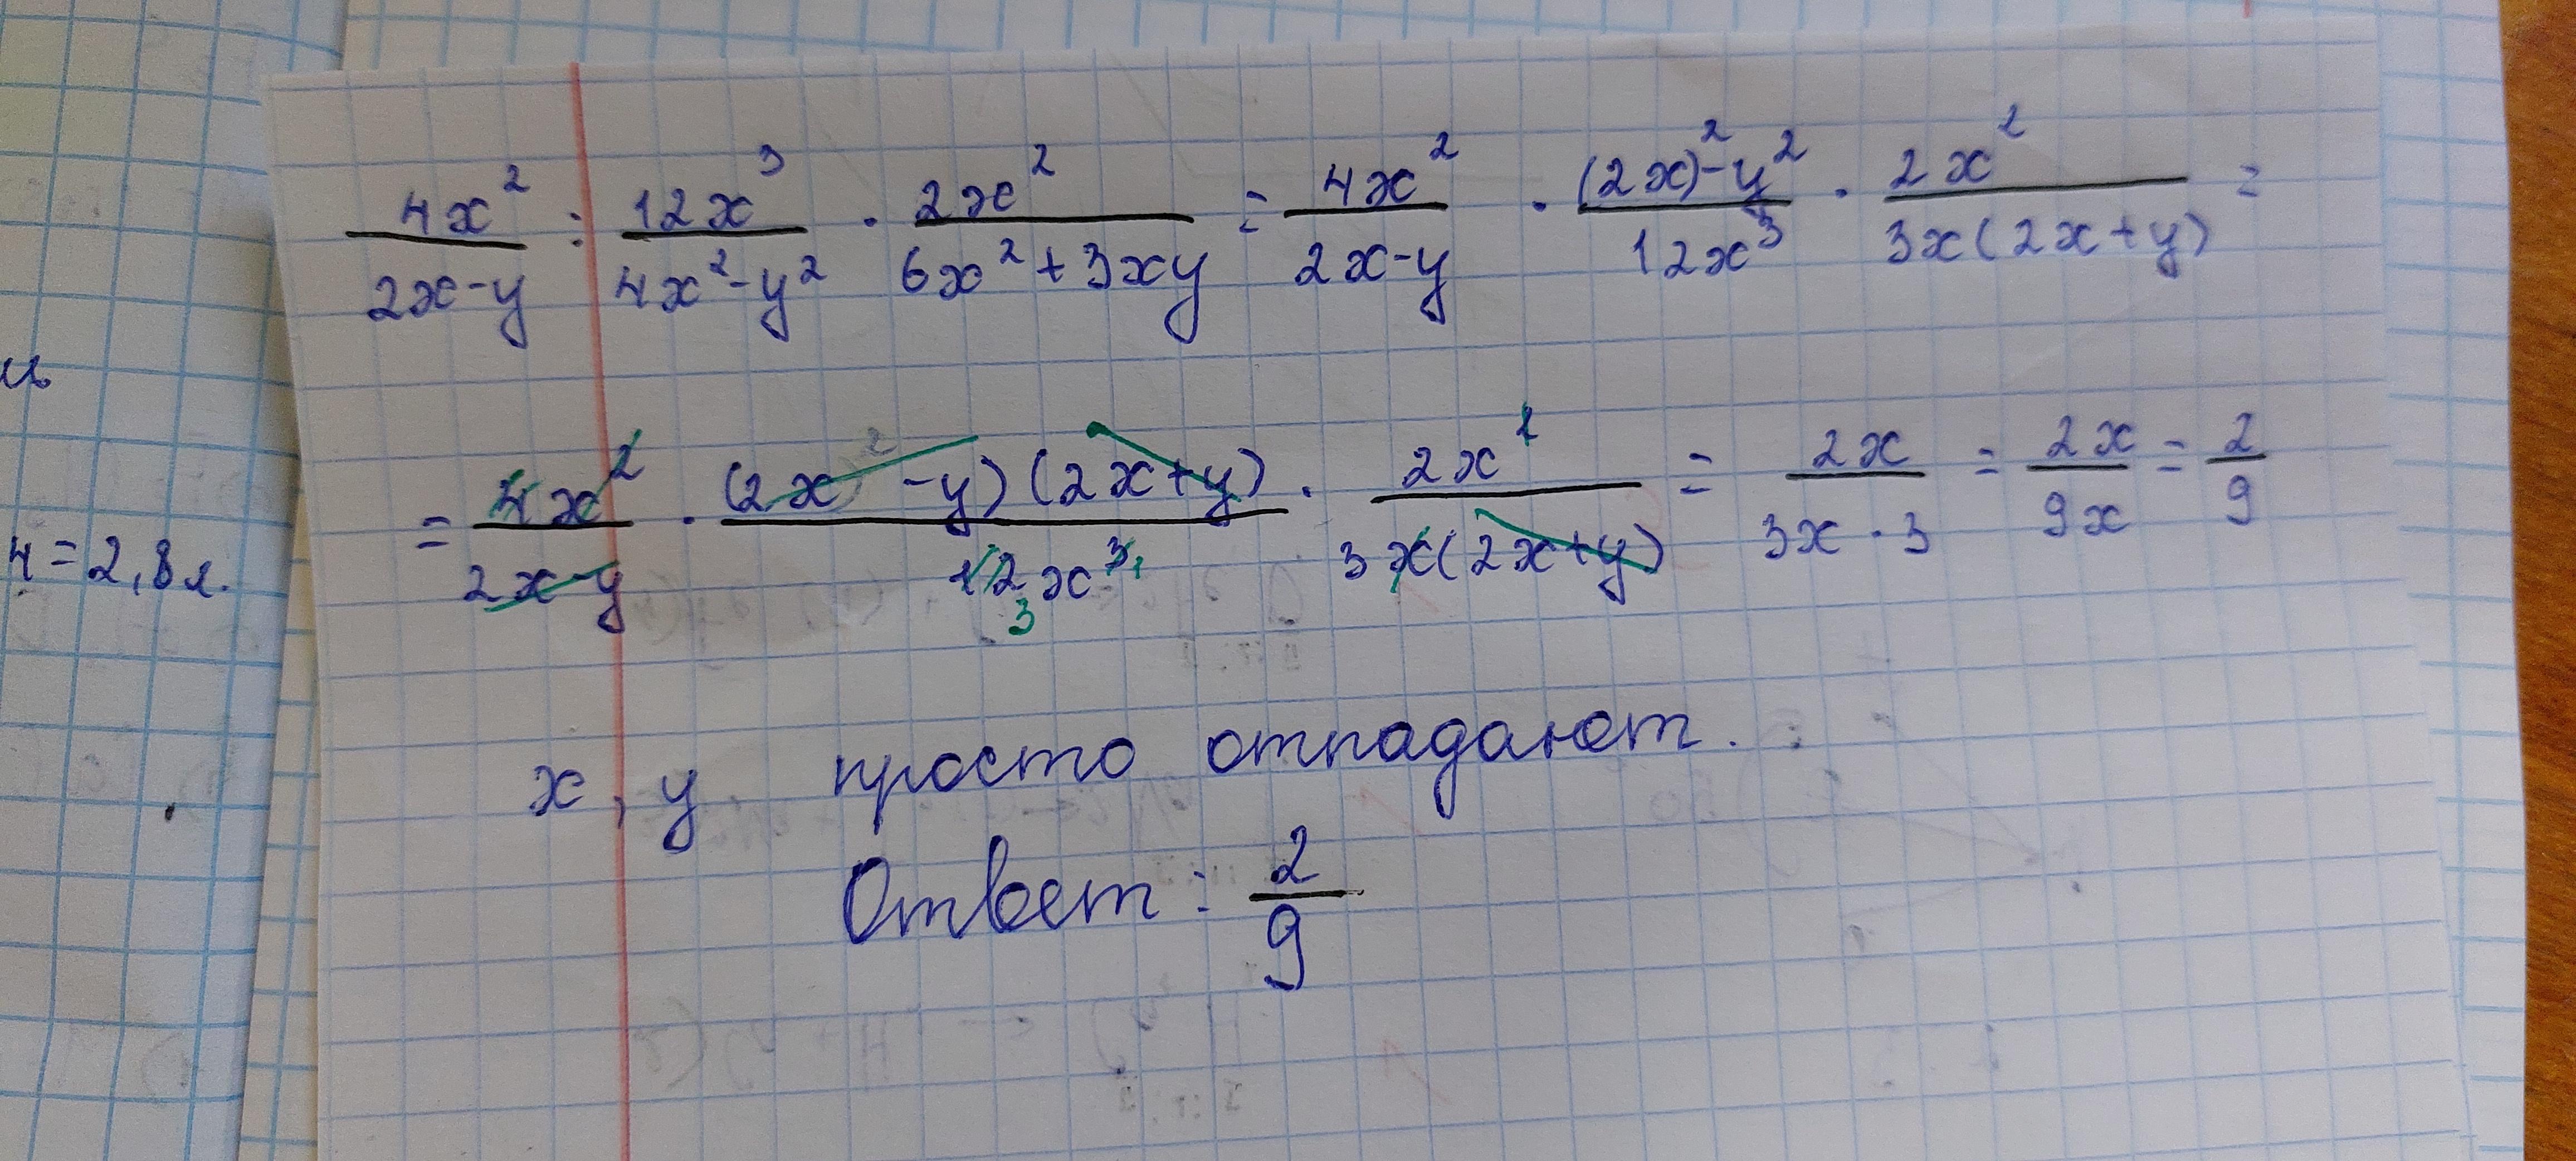 4x² / 2x-y : 12x³ / 4x²-y² · 2x² / 6x²+3xy = 4x² / 2x-y · (2x)²-y² / 12x³ · 2x² / 3x(2x+y) =
= 4x² / 2x-y · (2x-y)(2x+y) / 12x³ · 2x² / 3x(2x+y) = 2x / 3x·3 = 2x / 9x = 2 / 9
3
и
4=2,8л.
x, y просто отпадают.
Ответ: 2 / 9